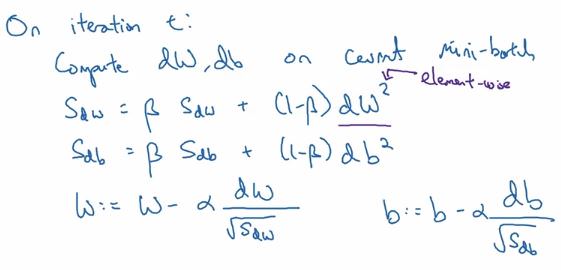 On iteration t:
Compute dW, db on current mini-batch
element-wise
S_dw = β S_dw + (1-β) dW²
S_db = β S_db + (1-β) db²
W := W - α dW/√S_dw    b := b - α db/√S_db